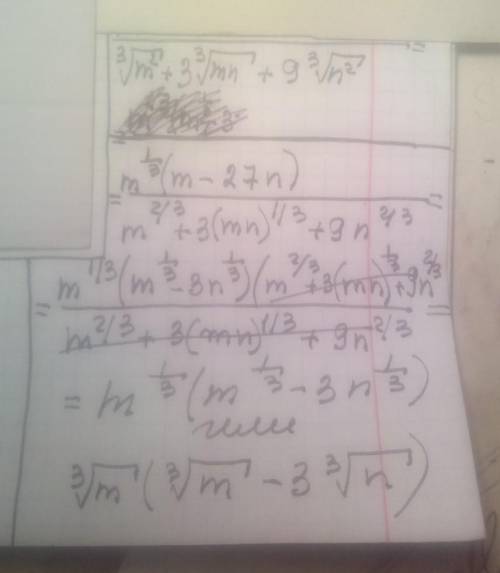 =
∛m² + 3∛mn + 9∛n²
= m^{1/3}(m - 27n) =
m^{2/3} + 3(mn)^{1/3} + 9n^{2/3}
= m^{1/3}(m^{1/3} - 3n^{1/3})(m^{2/3} + 3(mn)^{1/3} + 9n^{2/3} =
m^{2/3} + 3(mn)^{1/3} + 9n^{2/3}
= m^{1/3}(m^{1/3} - 3n^{1/3})
или
∛m(∛m - 3∛n)